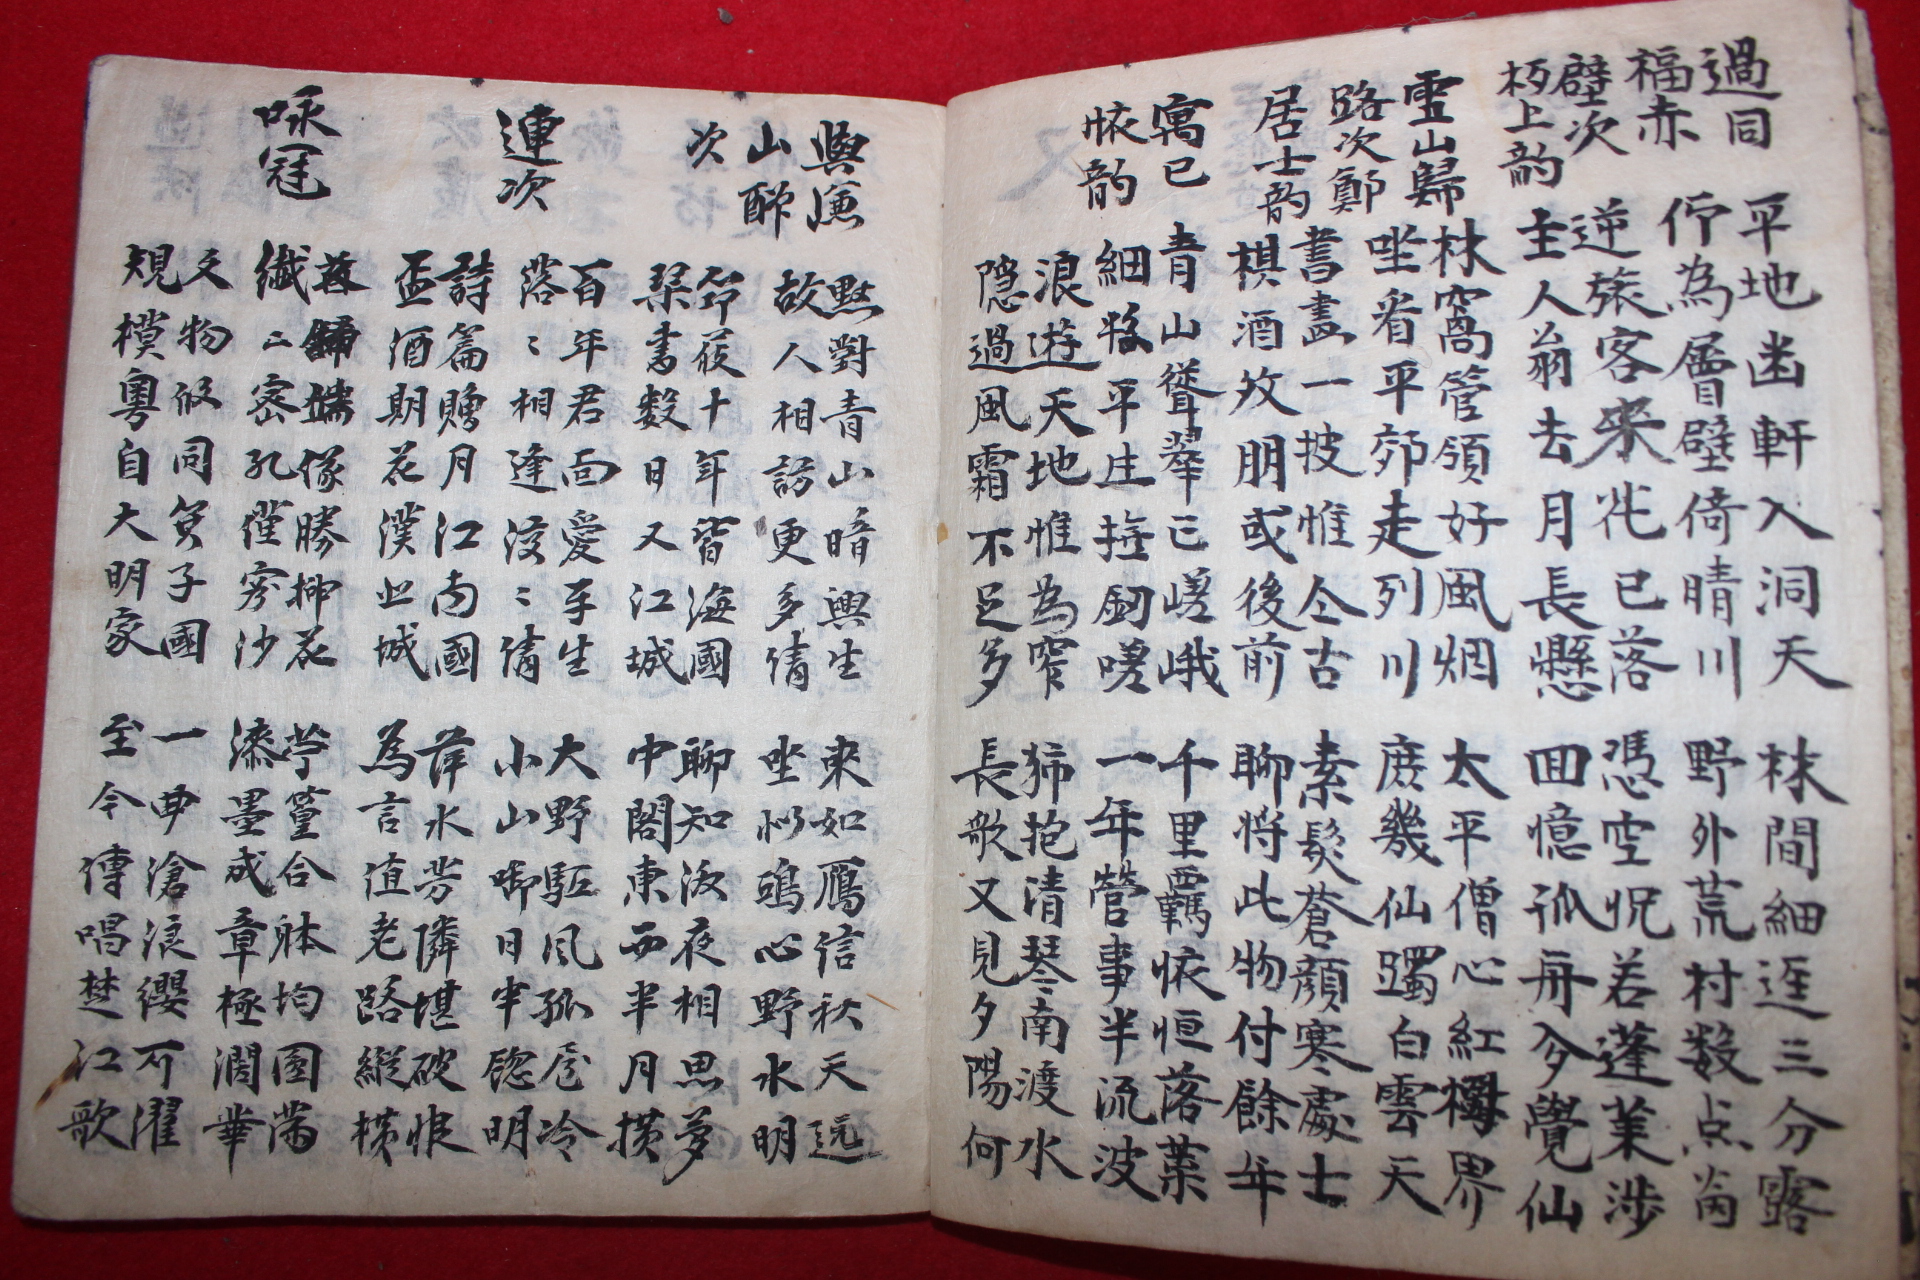 過同
福赤
壁次
板上韵
平地出軒入洞天
林間細逕三分露
行為層壁倚晴川
野外荒村数点菴
逆旅客来花已落
憑空怳若蓬莱渉
主人翁去月長懸
回憶孤舟夕覺仙
靈山歸
路次鄭
居士韵
林窩管領好風烟
太平僧心紅塵界
坐看平郊走列川
庶幾仙躅白雲天
書畵一披惟仝古
素髮蒼顔寒處士
棋酒攻朋或後前
聊将此物付餘年
寓已
依韵
青山聳翠已嵯峨
千里羈依恒落葉
細将平生撫劒嗟
一年營事半流波
浪遊天地惟為窄
狮抱清琴南渡水
隠過風霜不足多
長歌又見夕陽何
與
山酬
次
黙對青山暗興生
来如鴈信秋天远
故人相訪更多情
坐似鴎心野水明
節莰十年皆海國
聊知深夜相思夢
琹書数日又江城
中閣東西半月横
連次
百年君面愛平生
大野駈风孤不冷
落〻相逢淡〻情
小山啣日半窓明
詩篇贈月江南國
萍水芳隣堪破恨
盃酒期花漢上城
為言值老路縱横
咏冠
像勝柳花
苧篁合躰均圓滿
纖〻密孔僅容沙
漆墨成章極潤華
文物做同箕子國
一曲滄浪纓可濯
規模粤自大明家
至今傳唱楚江歌